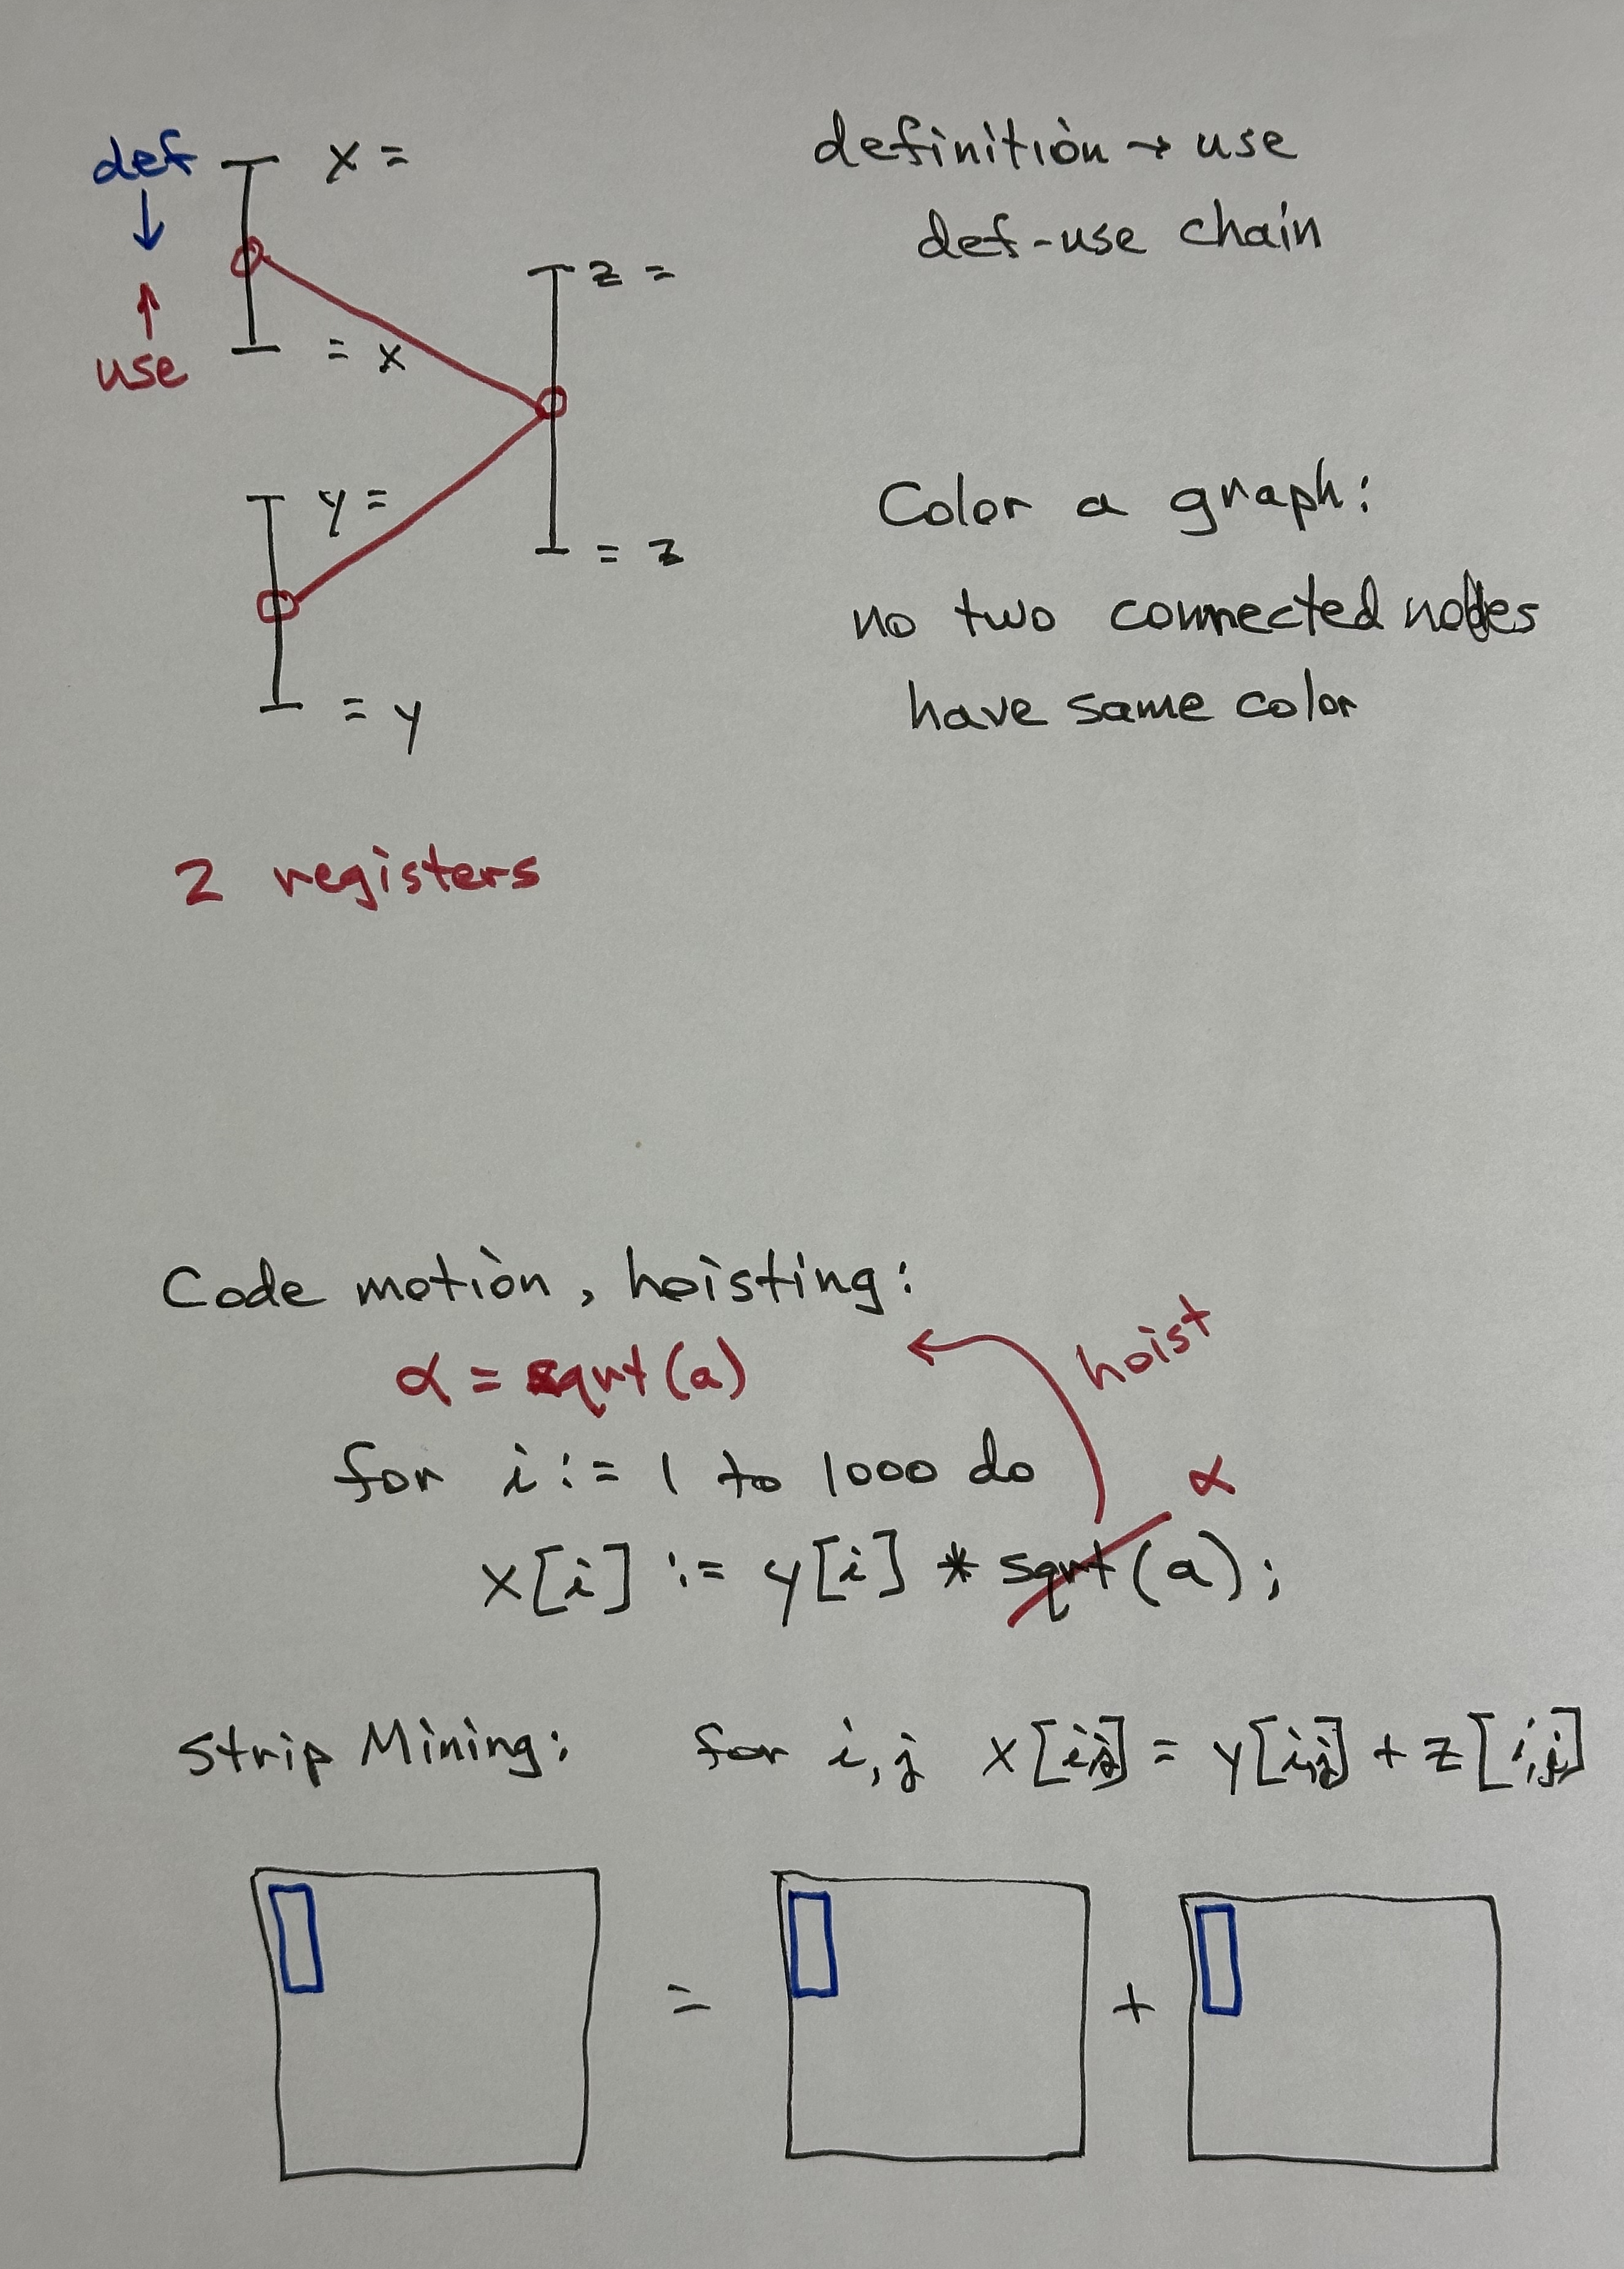 def x = definition → use
↓ def-use chain
z =
↑
use = x
Color a graph:
y =
= z
no two connected nodes
= y have same color
2 registers
Code motion, hoisting:
hoist
α = sqrt(a)
for i := 1 to 1000 do
α
x[i] := y[i] * sqrt(a);
Strip Mining: for i,j x[i,j] = y[i,j] + z[i,j]
= +